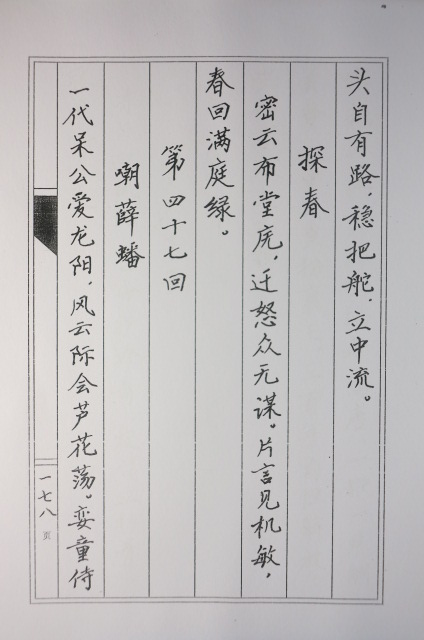 头自有路，稳把舵，立中流。
探春
密云布堂庑，迁怒众无谋。片言见机敏，
春回满庭绿。
第四十七回
嘲薛蟠
一代呆公爱龙阳，风云际会芦花荡。娈童侍
一七八
页